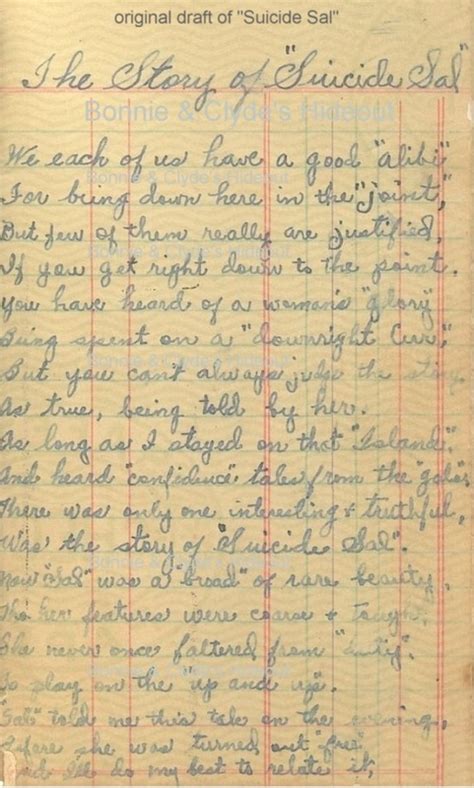 original draft of "Suicide Sal"
The Story of "Suicide Sal"
Bonnie & Clyde's Hideout
We each of us have a good "alibi"
Bonnie & Clyde's Hideout
For being down here in the "joint,"
But few of them really are justified,
Bonnie & Clyde's Hideout
If you get right down to the point.
You have heard of a woman's "glory"
Being spent on a "downright Cur,"
Bonnie & Clyde's Hideout
But you can't always judge the story
As true, being told by her.
As long as I stayed on that "Island".
And heard "confidence" tales from the "gals",
There was only one interesting & truthful,
Was the story of "Suicide Sal".
Bonnie & Clyde's Hideout
Now "Sal" was a "broad" of rare beauty,
Tho her features were coarse & tough.
She never once faltered from "duty".
Bonnie & Clyde's Hideout
To play on the "up and up".
"Sal" told me this tale on the evening,
Before she was turned out "free"
And I'll do my best to relate it,